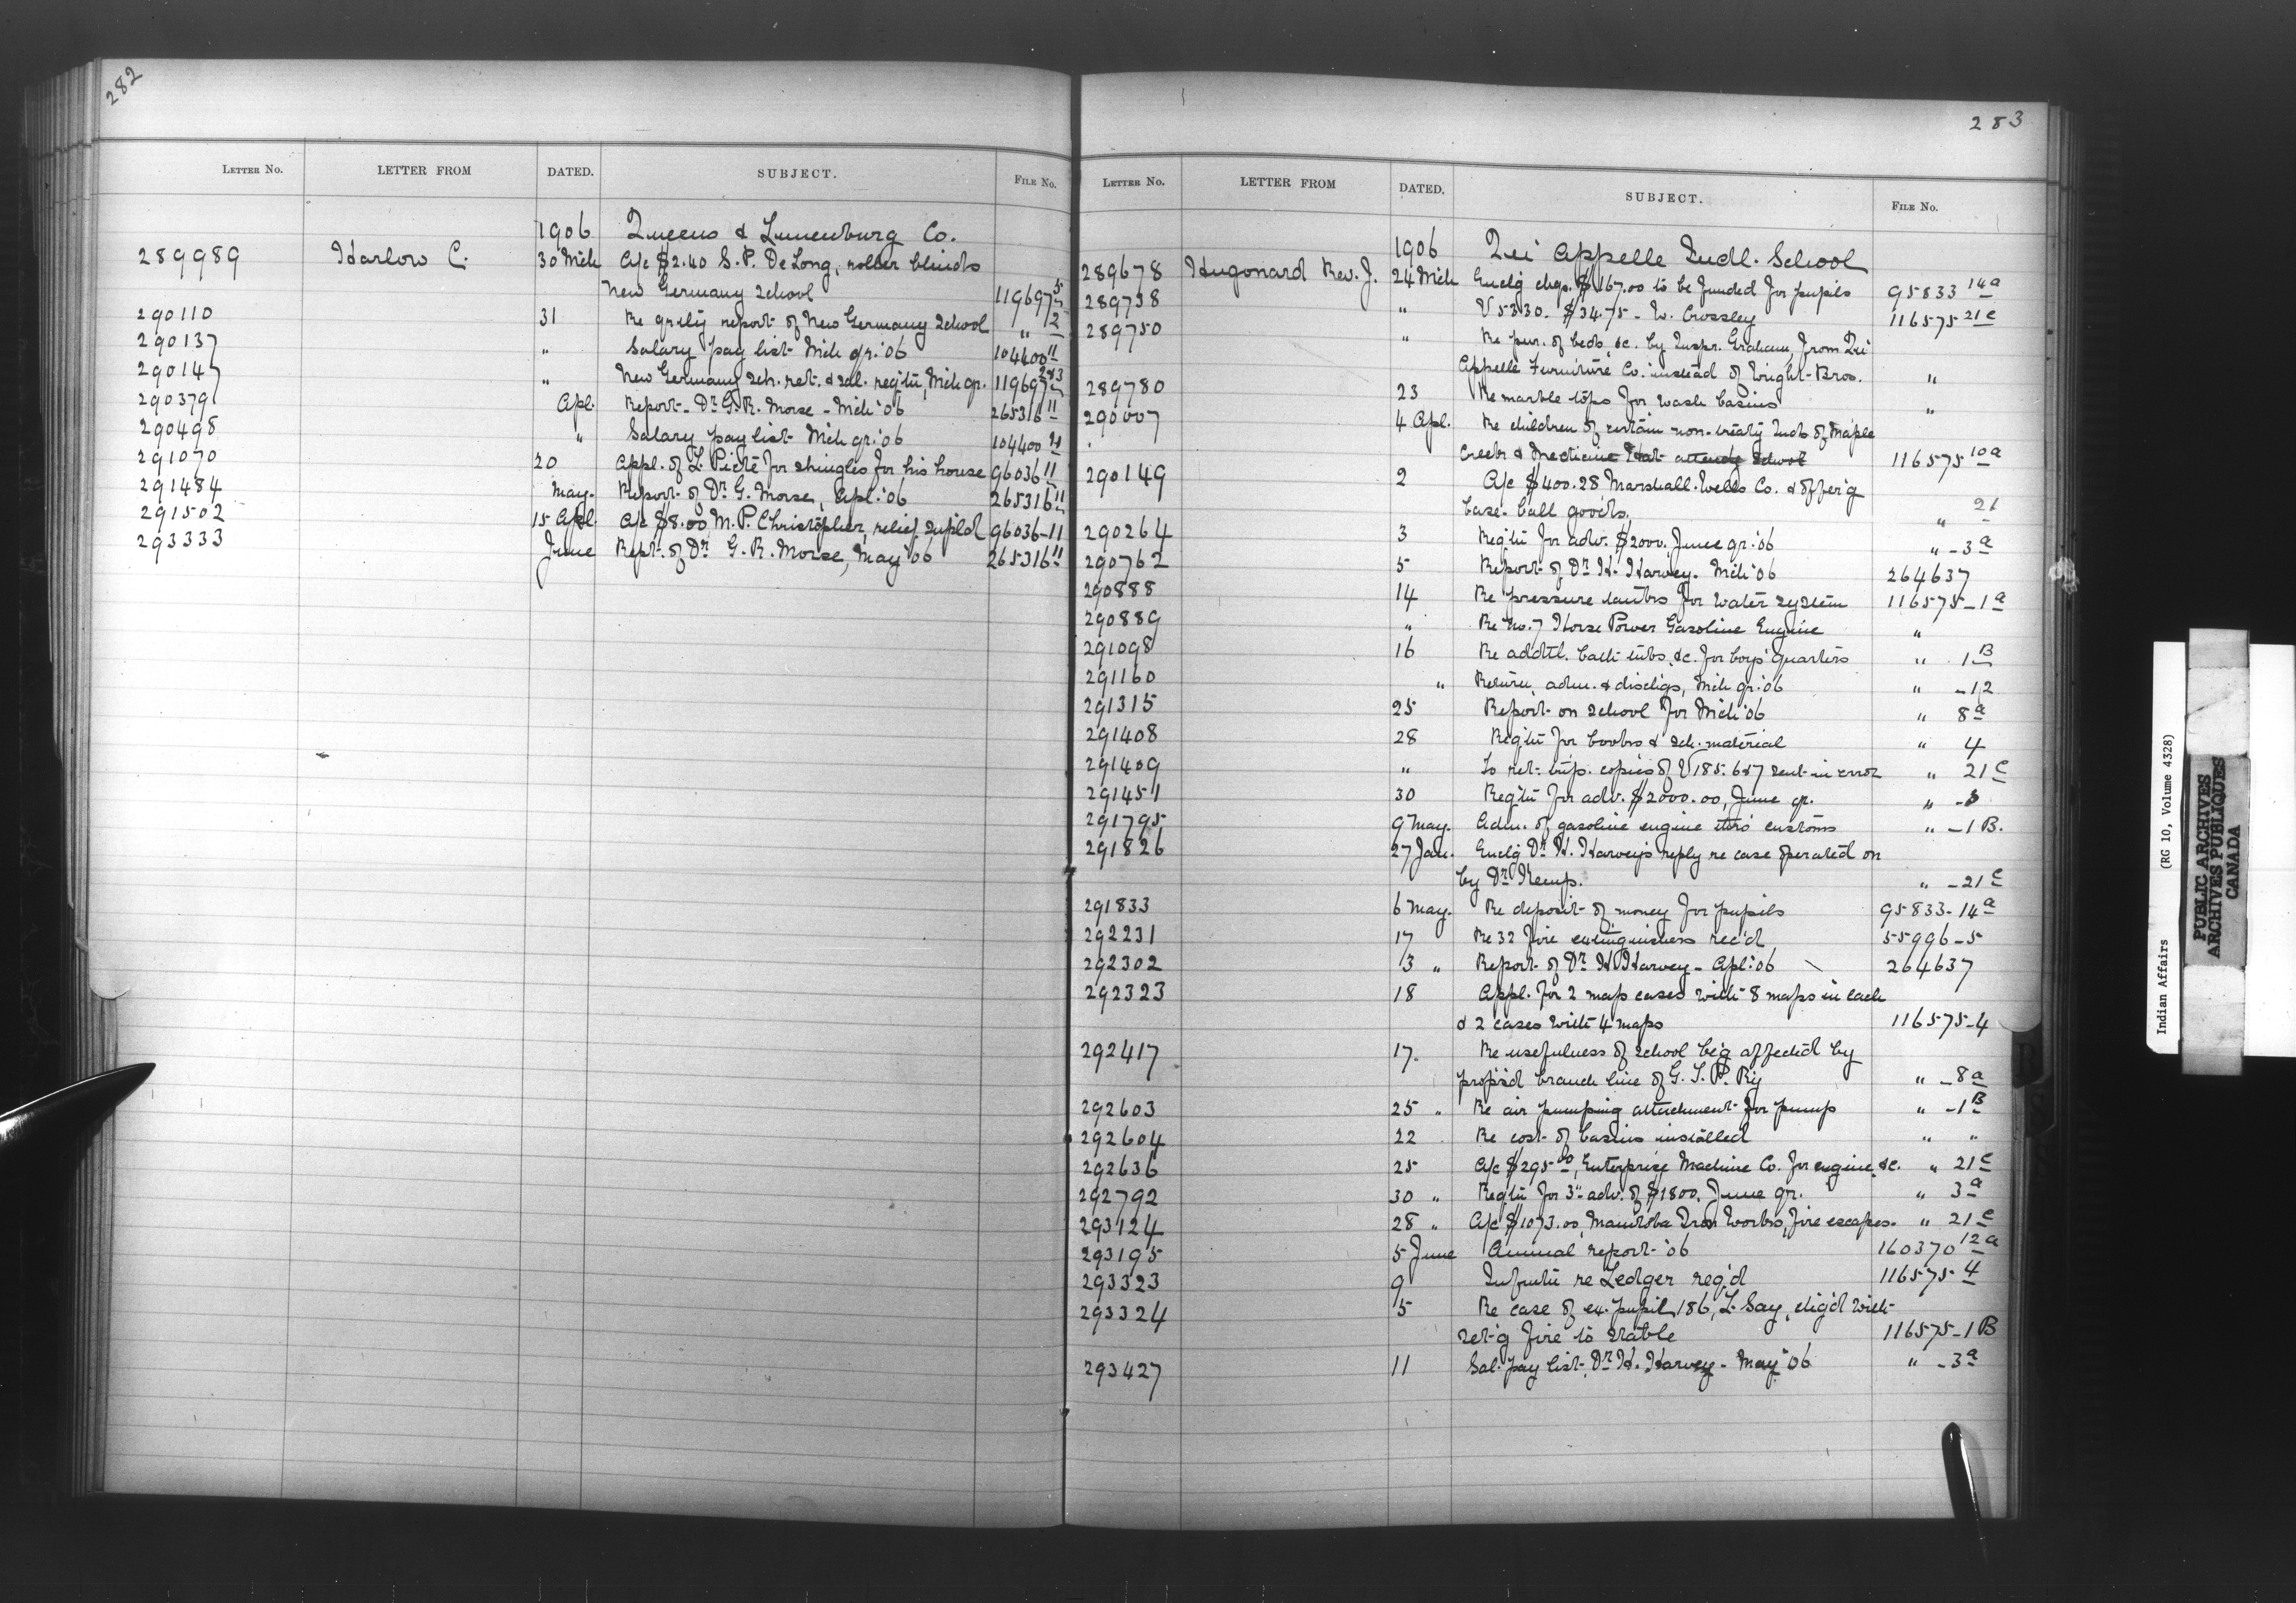 282
LETTER No. LETTER FROM DATED. SUBJECT. FILE No.
1906 Queens & Lunenburg Co.
289989 Harlow C. 30 Mch A/c $2.40 S. P. DeLong, roller blinds
New Germany School 119697 5
290110 31 Re qrtly report of New Germany School " 2
290137 " Salary pay list Mch qr. '06 104400 11
290147 " New Germany Sch. ret. & sal. reqtn, Mch qr. 119697 2&3
290379 Apl. Report - Dr. G. R. Morse - Mch '06 265316 11
290498 " Salary pay list Mch qr. '06 104400
291070 20 Appl. of L. Picté for shingles for his house 96036 11
291484 May. Report of Dr. G. Morse, Apl. '06 265316 11
291502 15 Apl. A/c $8.00 M. P. Christopher, relief supld 96036-11
293333 June Rept. of Dr. G. R. Morse, May '06 265316 11
283
LETTER No. LETTER FROM DATED. SUBJECT. FILE No.
1906 Qui Appelle Indl. School
289678 Hugonard Rev. J. 24 Mch Enclg chqs. $167.00 to be funded for pupils 95833 14a
289738 " V 5330. $34.75 - W. Crossley 116575 21c
289750 " Re pur. of beds, &c. by Inspr. Graham, from Qui
Appelle Furniture Co. instead of Wright Bros. "
289780 23 Re marble tops for wash basins "
290007 4 Apl. Re children of certain non-treaty Inds of Maple
Creek & Medicine Hat attendg School 116575 10a
290149 2 A/c $400.28 Marshall-Wells Co. & offer'g
base-ball goods. " 21
290264 3 Reqtn for adv. $2000. June qr. '06 " - 3a
290762 5 Report of Dr. H. Harvey. Mch '06 264637
290888 14 Re pressure tanks for water system 116575-1a
290889 " Re No. 7 Horse Power Gasoline Engine "
291098 16 Re addtl. bath tubs, &c. for boys' quarters " 1B
291160 " Return, adm. & dischgs, Mch qr. '06 " -12
291315 25 Report on School for Mch '06 " 8a
291408 28 Reqtn for books & sch. material " 4
291409 " To ret. trip. copies of V 185. 6&7 sent in error " 21c
291451 30 Reqtn for adv. $2000.00, June qr. " -3
291795 9 May. Adm. of gasoline engine thro' customs " -1B.
291826 27 Jan. Enclg Dr. H. Harvey's reply re case operated on
by Dr. Kemp. " -21c
291833 6 May. Re deposit of money for pupils 95833-14a
292231 17 Re 32 fire extinguishers rec'd 55996-5
292302 3 " Report of Dr. H. Harvey - Apl. '06 264637
292323 18 Appl. for 2 map cases with 8 maps in each
& 2 cases with 4 maps 116575-4
292417 17. Re usefulness of School be'g affected by
propsd branch line of G. T. P. Ry " -8a
292603 25 " Re air pumping attachment for pump " -1B
292604 22 Re cost of basins installed " "
292636 25 A/c $295.00, Enterprise Machine Co. for engine, &c. " 21c
292792 30 " Reqtn for 3" adv. of $1800. June qr. " 3a
293124 28 " A/c $1073.00, Manitoba Iron Works, fire escapes. " 21c
293195 5 June Annual report '06 160370 12a
293323 9 Infmtn re Ledger req'd 116575 4
293324 5 Re case of ex. pupil, 186, L. Say, chg'd with
set'g fire to stable 116575-1B
293427 11 Sal. pay list, Dr. H. Harvey - May '06 " - 3a
Indian Affairs (RG 10, Volume 4328)
PUBLIC ARCHIVES
ARCHIVES PUBLIQUES
CANADA